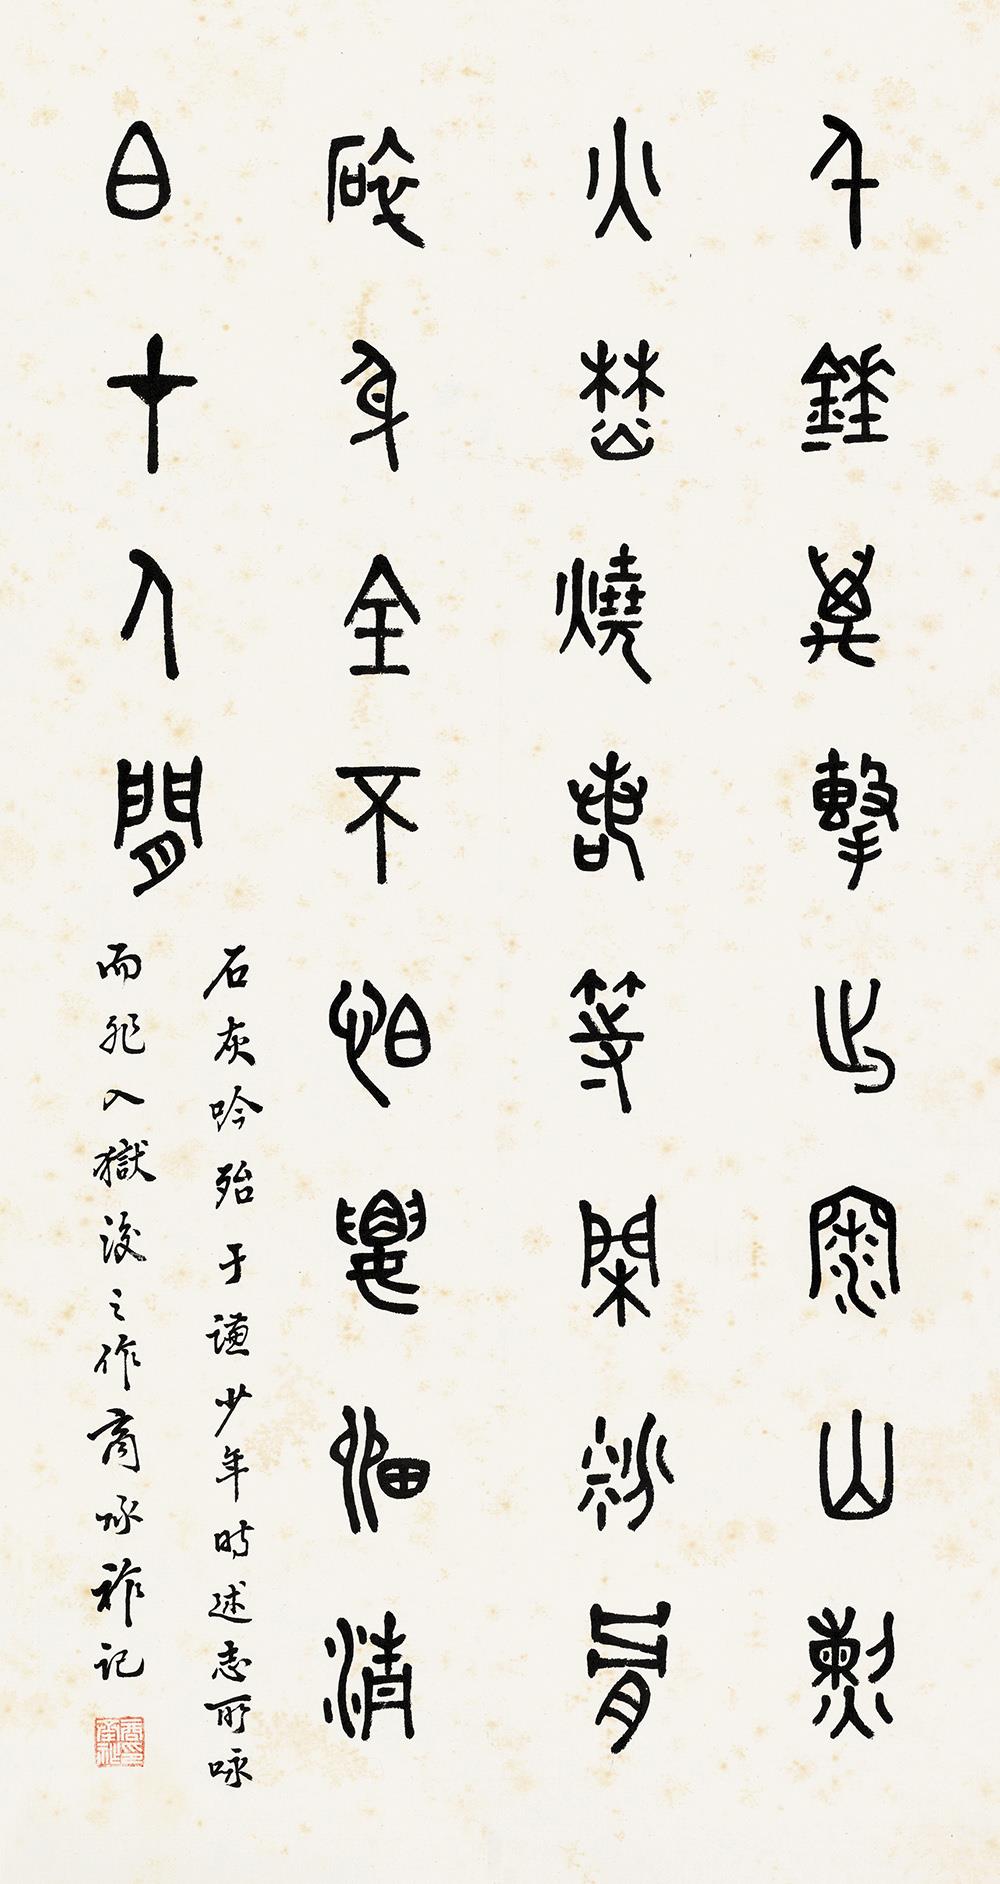 千錘萬擊出罙山烈
火焚燒若等閑粉骨
碎身全不怕要留清
白在人間
石灰吟殆于謙少年時述志所咏
而非入獄後之作商承祚記